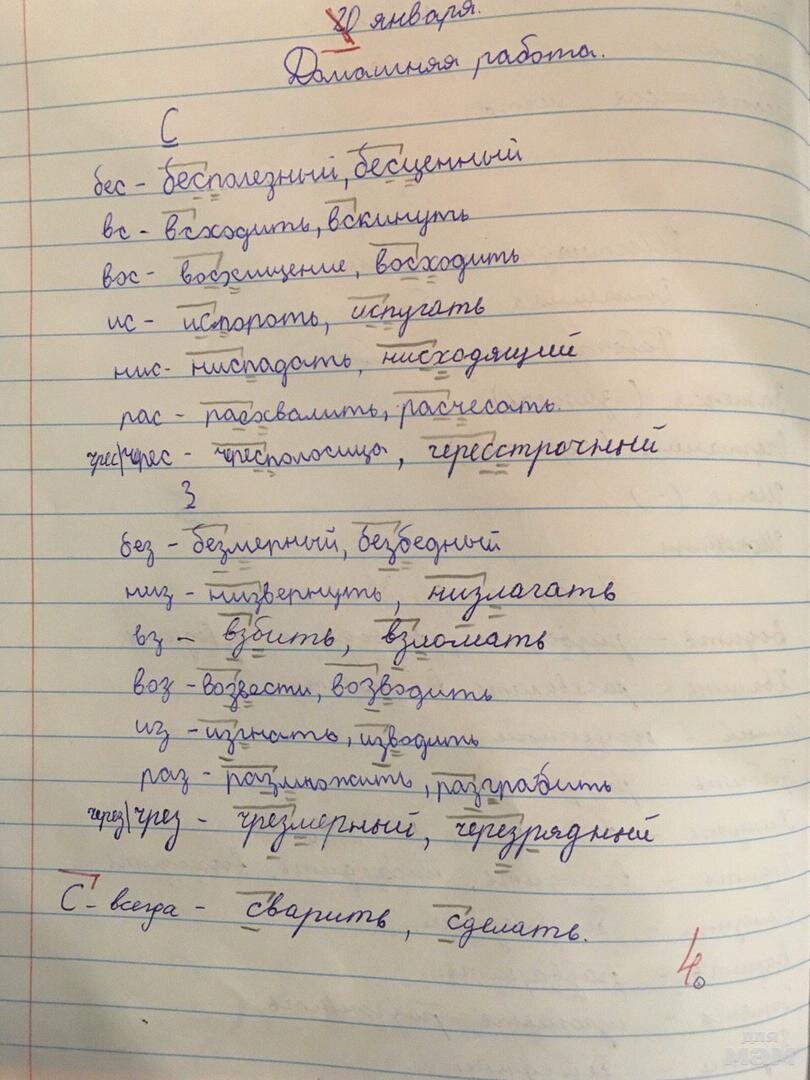 20 января.
Домашняя работа.
С
бес - бесполезный, бесценный
вс - всходить, вскинуть
вос - восхищение, восходить
ис - испороть, испугать
нис - ниспадать, нисходящий
рас - расхвалить, расчесать.
чрес/черес - чересполосица, чересстрочный
З
без - безмерный, безбедный
низ - низвернуть, низлагать
вз - взбить, взломать
воз - возвести, возводить
из - изгнать, изводить
раз - размножить, разграбить
через/чрез - чрезмерный, черезрядный
С - всегда - сварить, сделать.
4.
для
мэм